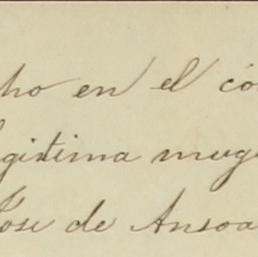 ho en el có
gitima muge
Jose de Ansoa